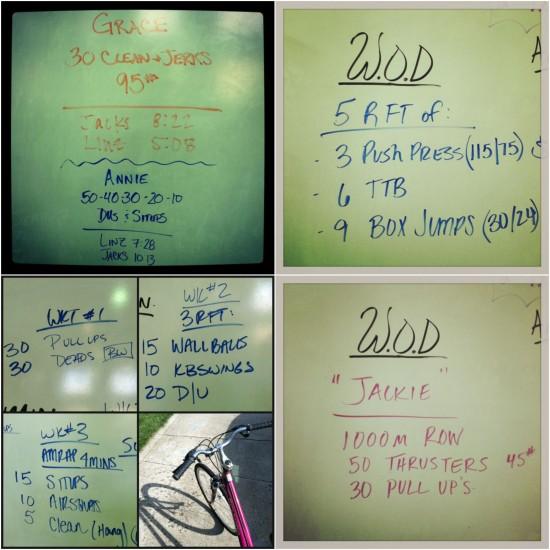 GRACE
30 CLEAN + JERKS
95#
JACKS 8:22
LINZ 5:08
ANNIE
50-40-30-20-10
DU'S & SITUPS
LINZ 7:28
JACKS 10:13
W.O.D
5 RFT of:
- 3 PUSH PRESS (115/75)
- 6 TTB
- 9 BOX JUMPS (30/24)
WKT #1
30 PULLUPS
30 DEADS BW
WK#2
3 RFT:
15 WALL BALLS
10 KBSWINGS
20 D/U
WK#3
AMRAP 4MINS
15 SITUPS
10 AIRSQUATS
5 Clean (Hang)
W.O.D
"JACKIE"
1000m ROW
50 THRUSTERS 45#
30 PULL UP'S